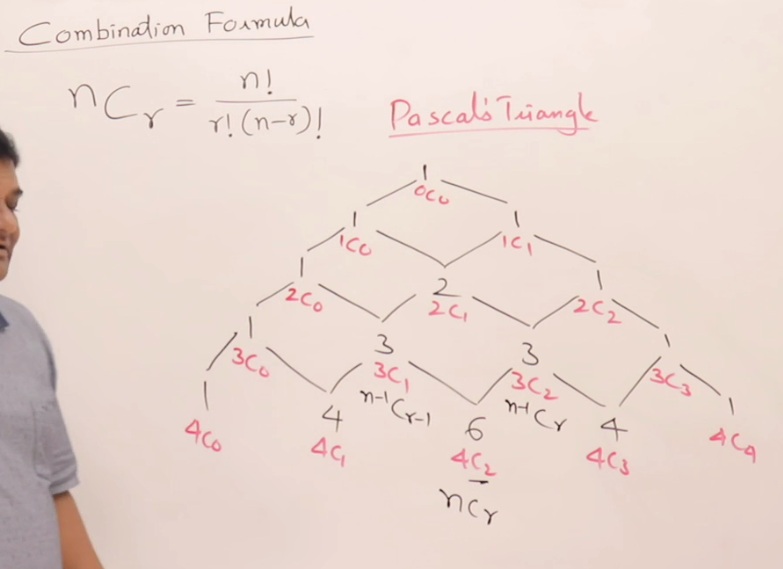 Combination Formula
nCr = n! / r!(n-r)!
Pascal's Triangle
1
0C0
1 1
1C0 1C1
1 2 1
2C0 2C1 2C2
1 3 3 1
3C0 3C1 3C2 3C3
n-1Cr-1 n-1Cr
1 4 6 4 1
4C0 4C1 4C2 4C3 4C4
nCr